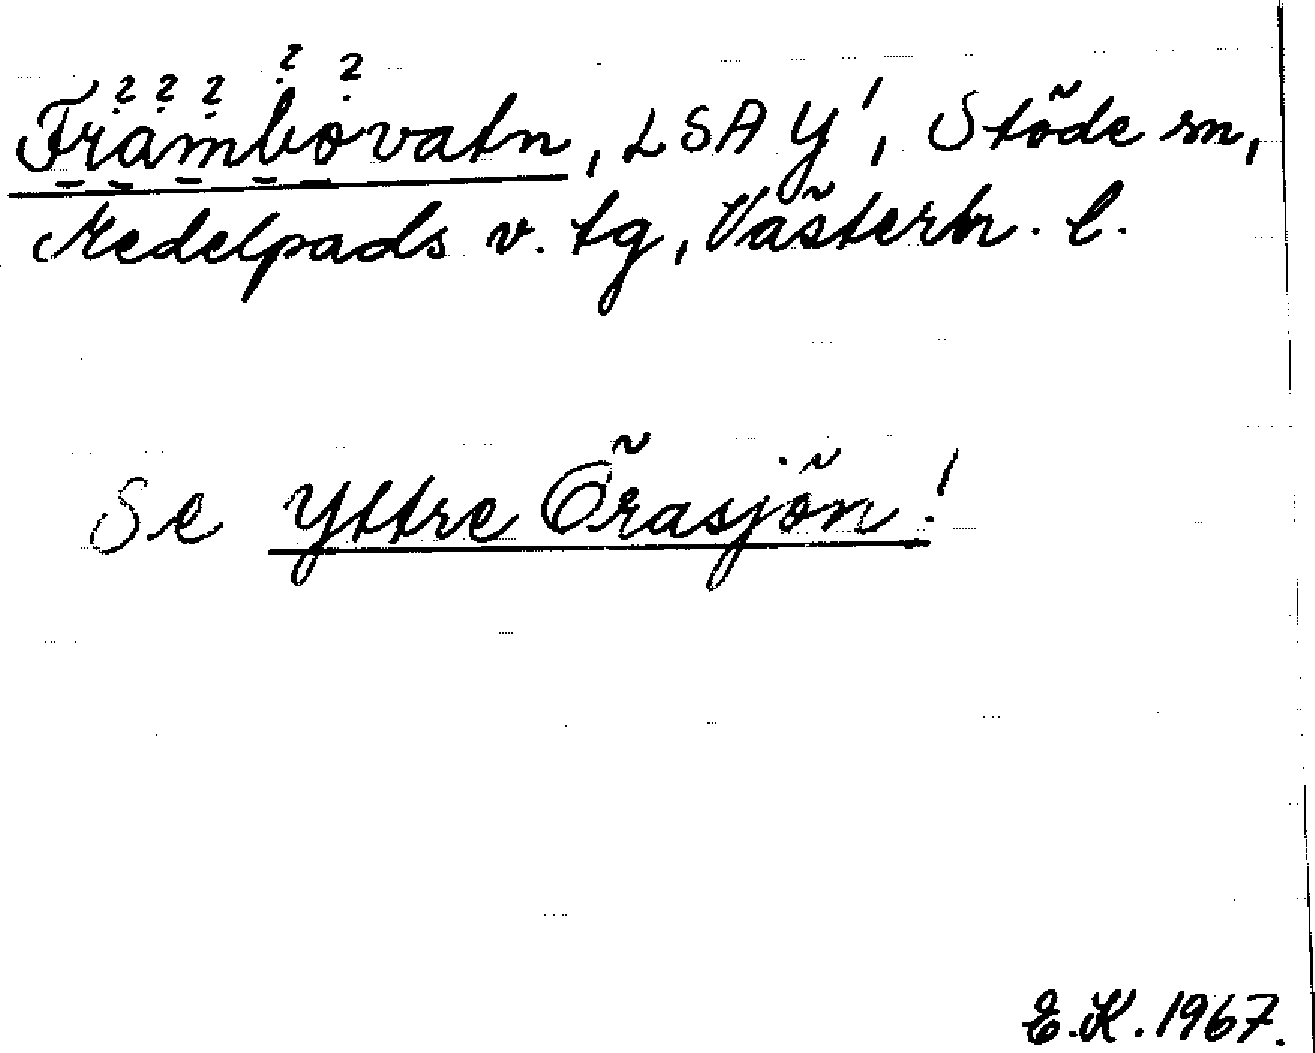 ? ? ? ? ?
Frambovatn, LSA Y', Stöde sn,
Medelpads v. tg, Västern. l.
Se Yttre Örasjön!
E.K. 1967.